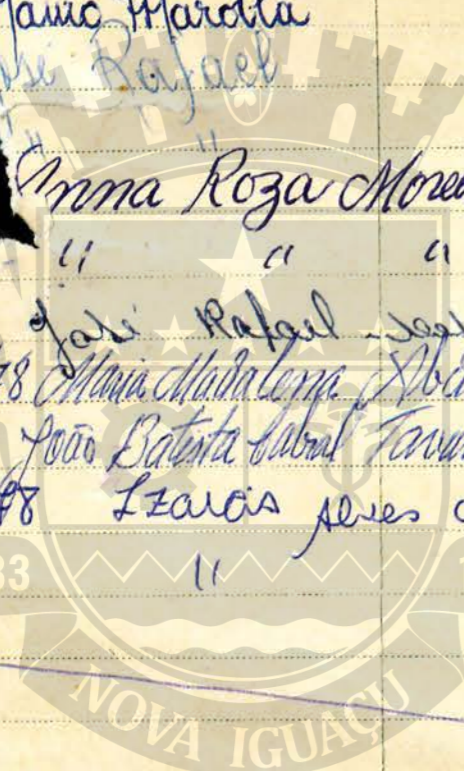 Marotta
José Rafael
" "
Anna Roza More
" " "
José Rafael
78 Maria Madalena Abd
João Batista Cabral Tavar
78 Izaias Alves
33 "
NOVA IGUAÇU